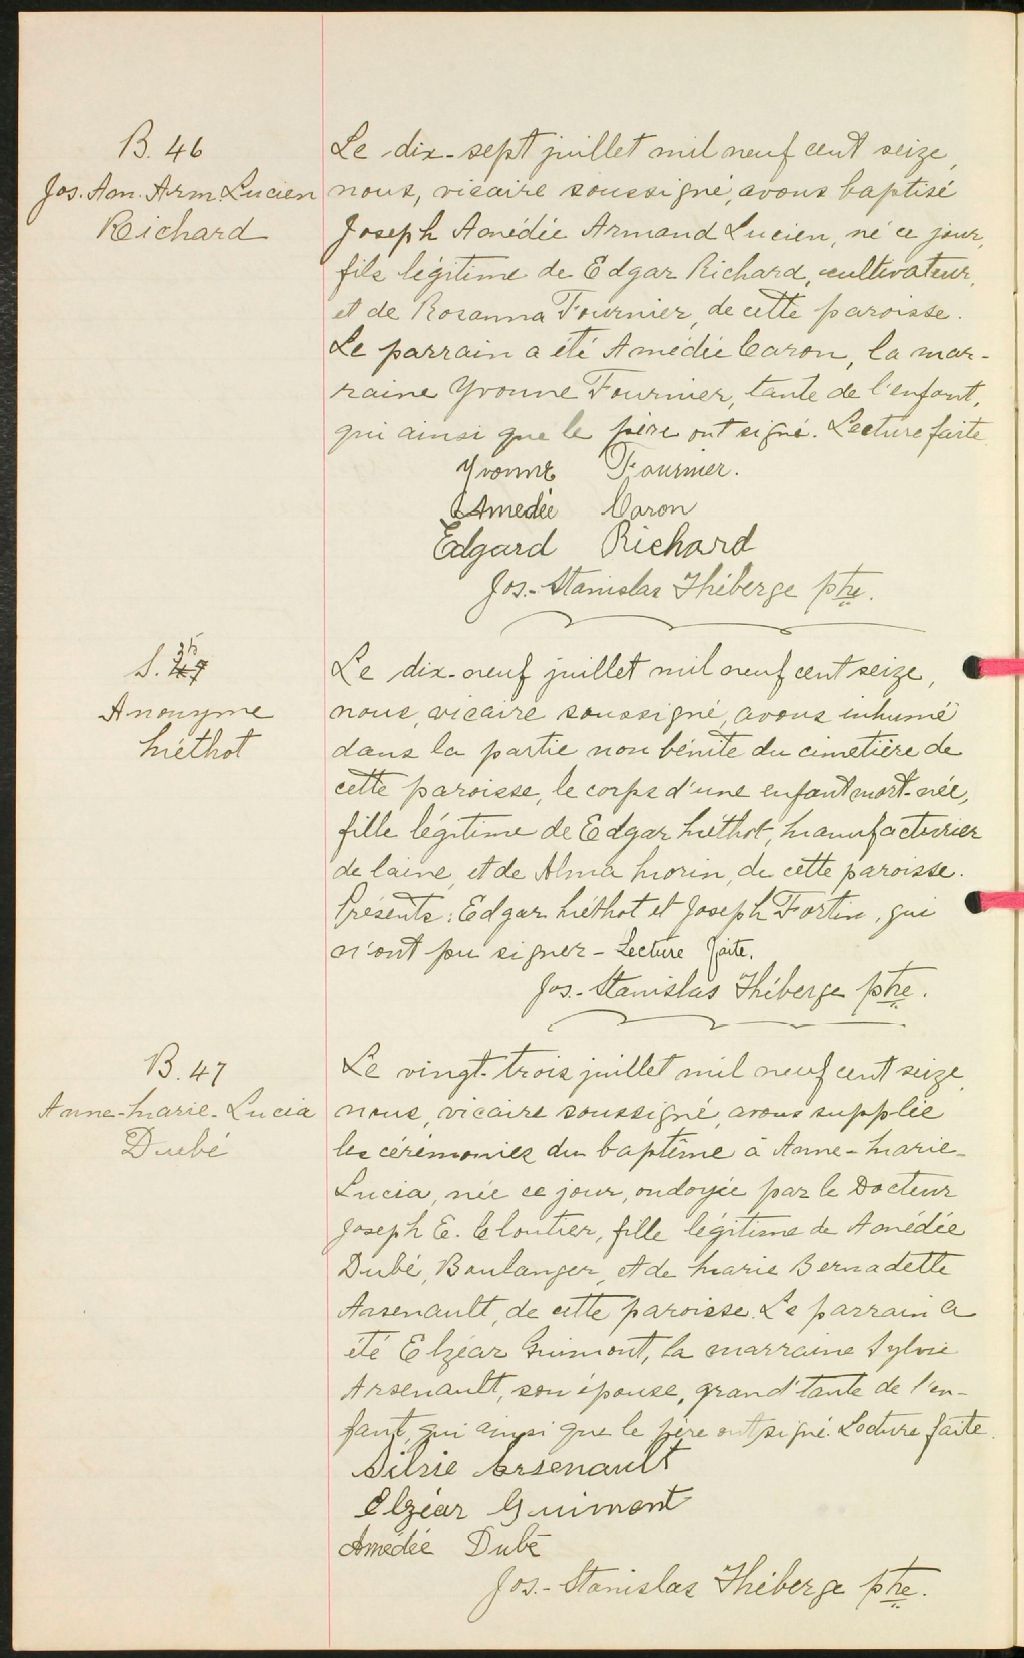 B. 46
Jos. Am. Arm. Lucien
Richard
Le dix-sept juillet mil neuf cent seize,
nous, vicaire soussigné, avons baptisé
Joseph Amédée Armand Lucien, né ce jour,
fils légitime de Edgar Richard, cultivateur,
et de Rosanna Fournier, de cette paroisse.
Le parrain a été Amédée Caron, la mar-
raine Yvonne Fournier, tante de l'enfant,
qui ainsi que le père ont signé. Lecture faite.
Yvonne Fournier.
Amedée Caron
Edgard Richard
Jos.-Stanislas Théberge ptre.
S.
Anonyme
Méthot
Le dix-neuf juillet mil neuf cent seize,
nous, vicaire soussigné, avons inhumé
dans la partie non bénite du cimetière de
cette paroisse, le corps d'une enfant mort-née,
fille légitime de Edgar Méthot, Manufacturier
de laine, et de Alma Morin, de cette paroisse.
Présents: Edgar Méthot et Joseph Fortin, qui
n'ont pu signer - Lecture faite.
Jos.-Stanislas Théberge ptre.
B. 47
Anne-Marie-Lucia
Dubé
Le vingt-trois juillet mil neuf cent seize,
nous, vicaire soussigné, avons supplée
les cérémonies du baptême à Anne-Marie-
Lucia, née ce jour, ondoyée par le Docteur
Joseph E. Cloutier, fille légitime de Amédée
Dubé, Boulanger, et de Marie Bernadette
Arsenault, de cette paroisse. Le parrain a
été Elzéar Guimont, la marraine Sylvie
Arsenault, son épouse, grand'tante de l'en-
fant, qui ainsi que le père ont signé. Lecture faite.
Silvie Arsenault
Elzéar Guimont
Amédée Dubé
Jos.-Stanislas Théberge ptre.